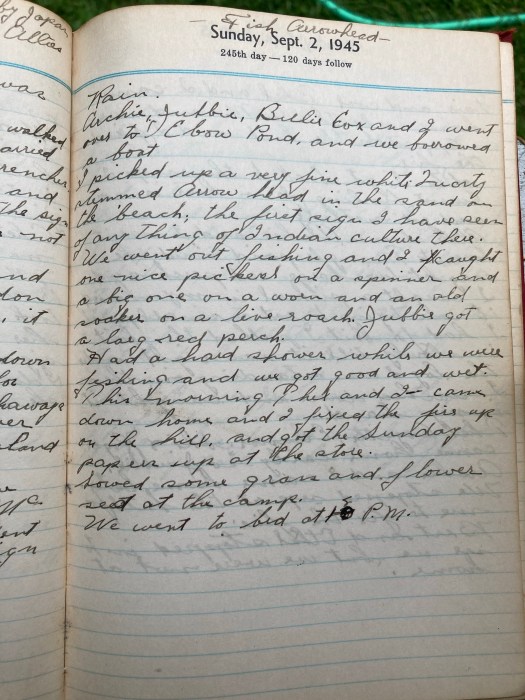 by Japan
Allies
was
walked
arried
rencher
and
The sign
not
nd
don
it
down
for
er
land
Mc
ent
ign
— Fish Arrowhead —
Sunday, Sept. 2, 1945
245th day — 120 days follow
Rain.
Archie, Jubbie, Billie Cox and I went
over to Elbow Pond, and we borrowed
a boat
I picked up a very fine white Quartz
stemmed Arrow head in the sand on
the beach; the first sign I have seen
of any thing of Indian culture there.
We went out fishing and I caught
one nice pickerel on a spinner and
a big one on a worm and an old
soaker on a live roach. Jubbie got
a larg red perch.
Had a hard shower while we were
fishing and we got good and wet.
This morning Phil and I came
down home and I fixed the fire up
on the hill, and got the Sunday
papers up at the store.
Sowed some grass and flower
seed at the camp.
We went to bed at P.M.